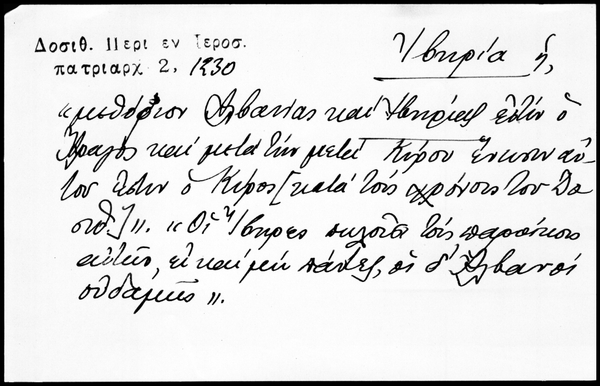 Δοσιθ. Περι εν Ιεροσ.
πατριαρχ 2, 1230
Ἰβηρία ἡ,
«μεθόριον Ἀλβανίας καὶ Ἰβηρίας ἐστὶν ὁ
καὶ μετὰ τὴν μετὰ Κύρου ἕνωσιν αὐ-
τοῦ ἐστιν ὁ Κῦρος [κατὰ τοὺς χρόνους τοῦ Δο
σιθ.]». «Οἱ Ἴβηρες τοῖς
αὐτῆς, εἰ καὶ μὴ πάντες, οἱ δ' Ἀλβανοὶ
οὐδαμῶς».